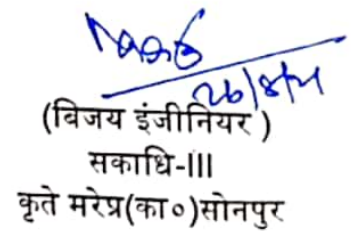 26/8/21
(विजय इंजीनियर )
सकाधि-III
कृते मरेप्र(का०)सोनपुर